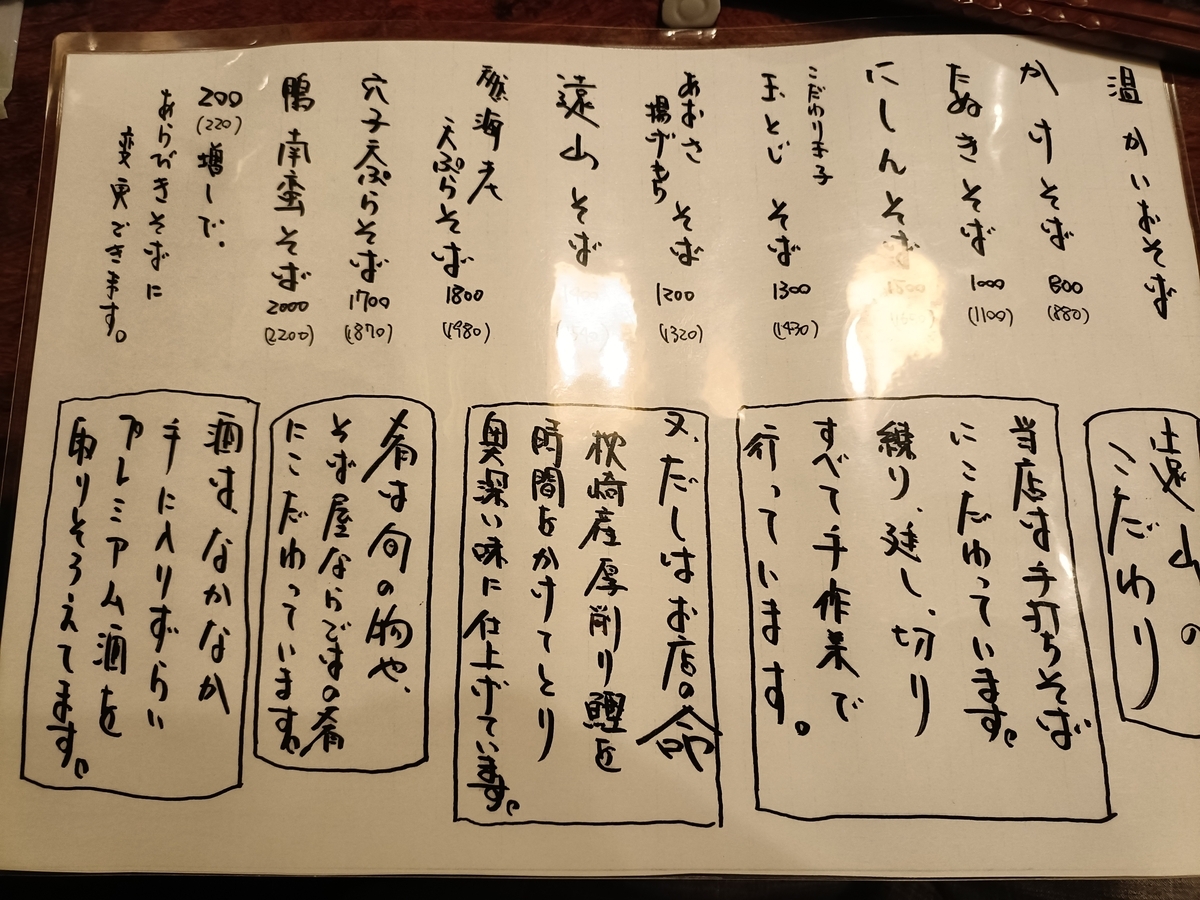 温かいおそば
かけそば 800 (880)
たぬきそば 1000 (1100)
にしんそば
こだわり玉子
玉とじそば 1300 (1430)
あおさ
揚げもち そば 1200 (1320)
遠山そば
海老
天ぷらそば 1800 (1980)
穴子天ぷらそば 1700 (1870)
鴨南蛮そば 2000 (2200)
200 (220) 増しで、
あらびきそばに
変更できます。
遠山の
こだわり
当店は手打ちそば
にこだわっています。
練り、延し、切り
すべて手作業で
行っています。
又、だしはお店の命
枕崎産厚削り鰹を
時間をかけてとり
奥深い味に仕上げています。
肴は旬の物や、
そば屋ならではの肴
にこだわっています。
酒は、なかなか
手に入りずらい
プレミアム酒を
取りそろえてます。